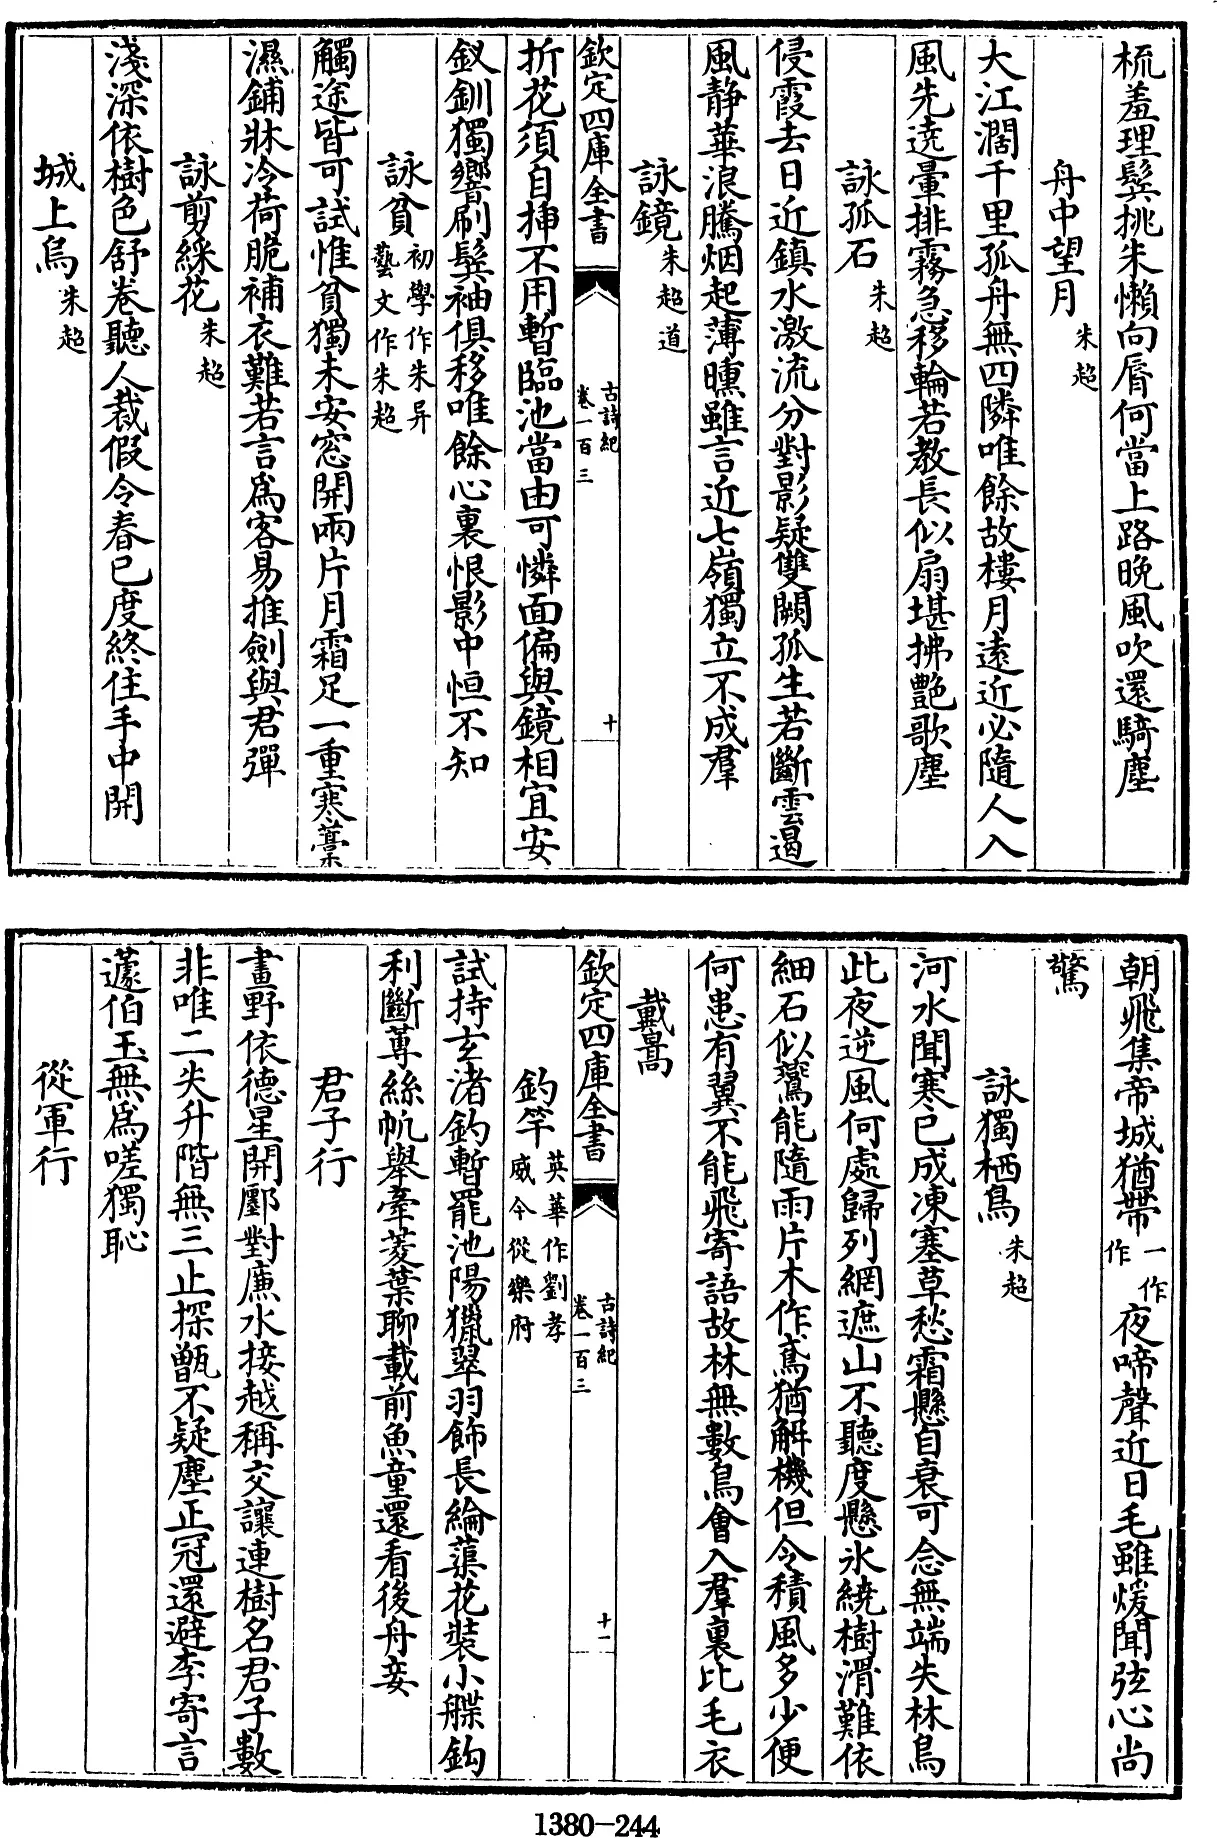 梳羞理鬓挑朱懶向脣何當上路晚風吹還騎塵
舟中望月朱超
大江濶千里孤舟無四隣唯餘故樓月遠近必隨人入
風先遶暈排霧急移輪若教長似扇堪拂艷歌塵
詠孤石朱超
侵霞去日近鎮水激流分對影疑雙闕孤生若斷雲遏
風静華浪騰烟起薄曛雖言近七嶺獨立不成羣
詠鏡朱超道
欽定四庫全書
古詩紀
卷一百三
十
折花須自插不用暫臨池當由可憐面偏與鏡相宜安
釵釧獨響刷鬓袖俱移唯餘心裏恨影中恒不知
詠貧初學作朱异
藝文作朱超
觸途皆可試惟貧獨未安窓開兩片月霜足一重寒藁
濕鋪牀冷荷脆補衣難若言爲客易推劍與君彈
詠剪綵花朱超
淺深依樹色舒卷聽人裁假令春已度終住手中開
城上烏朱超
朝飛集帝城猶帶一作
作夜啼聲近日毛雖煖聞弦心尚
驚
詠獨栖鳥朱超
河水聞寒已成凍塞草愁霜懸自衰可念無端失林鳥
此夜逆風何處歸列網遮山不聽度懸氷繞樹滑難依
細石似鷰能隨雨片木作鳶猶解機但令積風多少便
何患有翼不能飛寄語故林無數鳥會入羣裏比毛衣
戴暠
欽定四庫全書
古詩紀
卷一百三
十一
釣竿英華作劉孝
威今從樂府
試持玄渚釣暫罷池陽獵翠羽飾長綸蕖花裝小艓鈎
利斷蓴絲帆舉牽菱葉聊載前魚童還看後舟妾
君子行
畫野依德星開酈對廉水接越稱交讓連樹名君子數
非唯二失升階無三止探甑不疑塵正冠還避李寄言
蘧伯玉無爲嗟獨恥
從軍行
1380-244